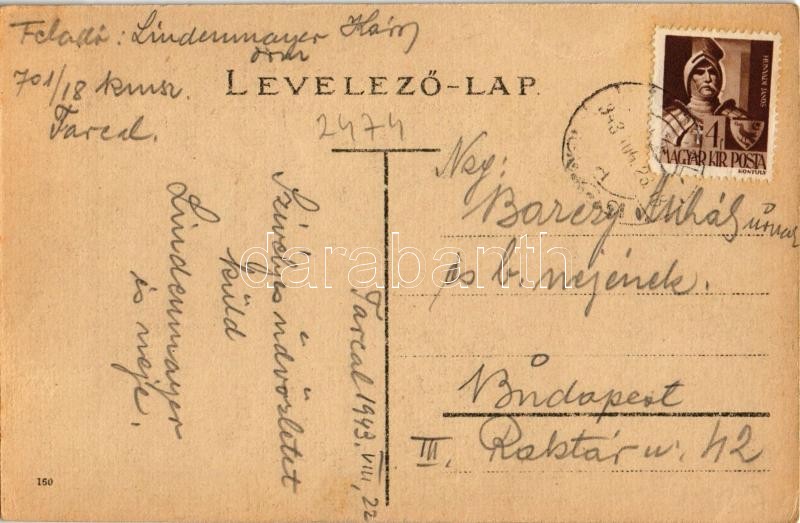 Feladó: Lindenmayer
701/18 kmsz.
Tarcal.
LEVELEZŐ-LAP.
2474
Tarcal 1943. VIII, 22
Szívélyes üdvözletet
küld
Lindenmayer
és neje.
HUNYADI JÁNOS
4f
MAGYAR KIR. POSTA
KONTULY
943
23
Nag:
Mihály úrnak
és b. nejének.
Budapest
III. Raktár u. 42
160
darabanth